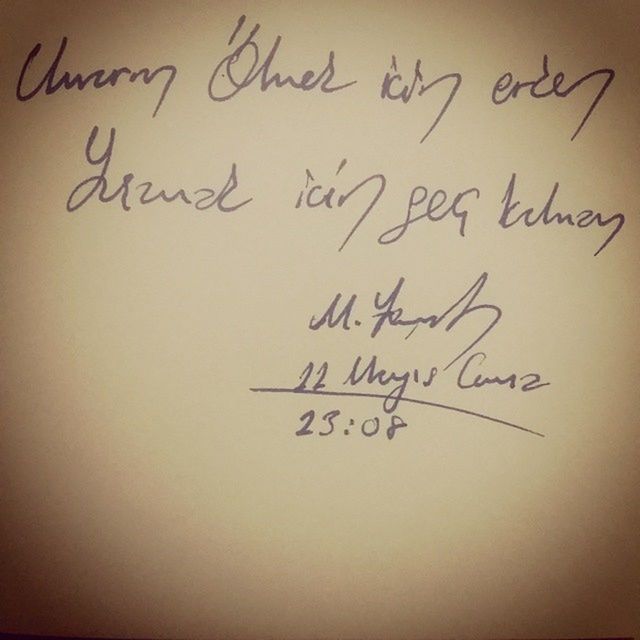 Umarım Ölmek için erken
Yaşamak için geç kalmam
M.
11 Mayıs Cuma
23:08